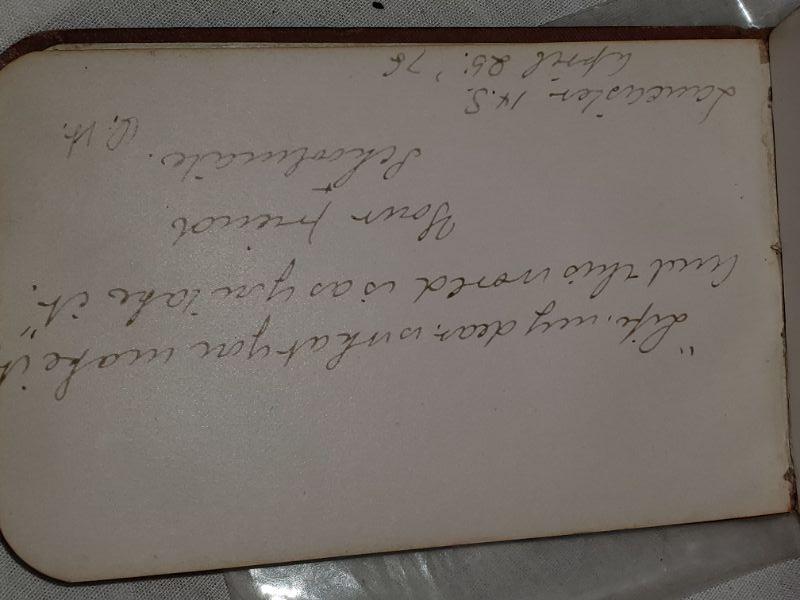 "Life, my dear, is what you make it
And this world is as you take it."
Your friend
Schoolmate.
Lancaster, H.S.
April 25. '78